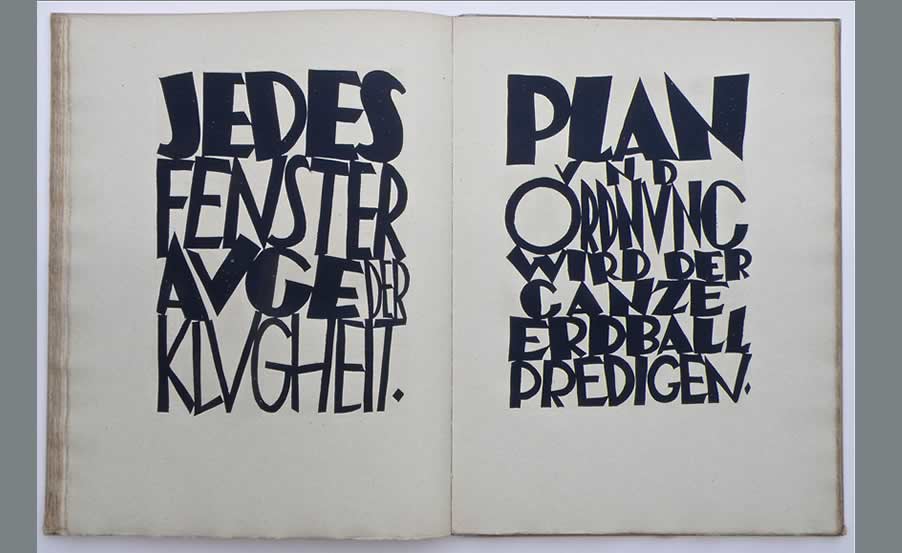 JEDES
FENSTER
AVGE DER
KLVGHEIT.
PLAN
VND
ORDNVNG
WIRD DER
GANZE
ERDBALL
PREDIGEN.